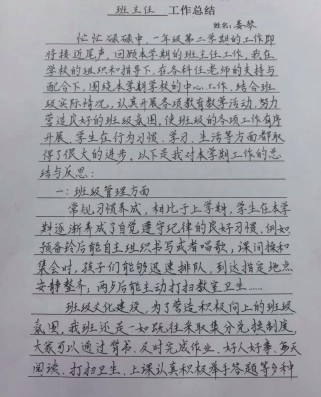 班主任 工作总结
姓名:姜琴
忙忙碌碌中,一年级第二学期的工作即
将接近尾声,回顾本学期的班主任工作,我在
学校的组织和指导下,在各科任老师的支持与
配合下,围绕本学期学校的中心工作,结合班
级实际情况,认真开展各项教育教学活动,努力
营造良好的班级氛围,使班级的各项工作有序
开展,学生在行为习惯、学习、生活等方面都取
得了很大的进步,以下是我对本学期工作的总
结与反思:
一:班级管理方面
常规习惯养成,相比于上学期,学生在本学
期逐渐养成了自觉遵守纪律的良好习惯,例如
预备铃后能自主组织书写或者唱歌,课间操和
集会时,孩子们能够迅速排队,到达指定地点
安静整齐;两夕后能主动打扫教室卫生……
班级文化建设,为了营造积极向上的班级
氛围,我班还是一如既往采取集分兑换制度,
大家可以通过背书、及时完成作业、好人好事、每天
阅读、打扫卫生、上课认真积极举手答题等多种